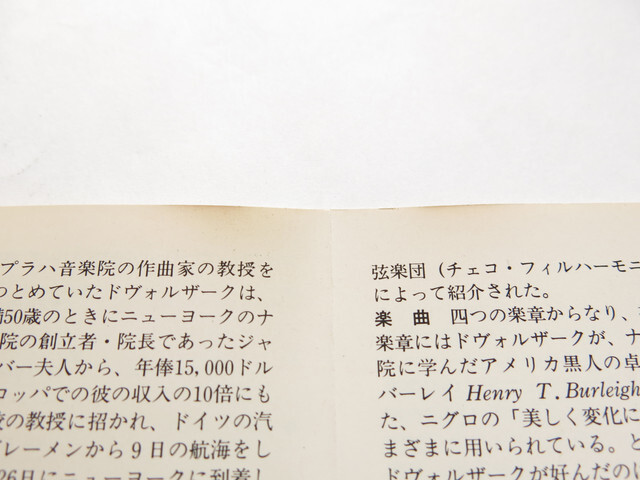 プラハ音楽院の作曲家の教授を
つとめていたドヴォルザークは、
満50歳のときにニューヨークのナ
院の創立者・院長であったジャ
バー夫人から、年俸15,000ドル
ロッパでの彼の収入の10倍にも
の教授に招かれ、ドイツの汽
ブレーメンから9日の航海をし
26日にニューヨークに到着し
弦楽団（チェコ・フィルハーモニ
によって紹介された。
楽 曲 四つの楽章からなり、
楽章にはドヴォルザークが、ナ
院に学んだアメリカ黒人の卓
バーレイ Henry T. Burleigh
た、ニグロの「美しく変化に
まざまに用いられている。と
ドヴォルザークが好んだのは